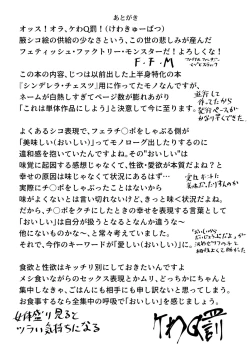 あとがき
オッス！オラ、ケわQ罰！（けわきゅーばつ）
腋シコ絵の供給の少なさという、この世の悲しみが産んだ
フェティッシュ・ファクトリー・モンスターだ！よろしくな！
F・F・M
この本の内容、じつは以前出した上半身特化の本
『シンデレラ・チェスツ』用に作ってたモノなんですが、
ネームが白熱しすぎてページ数が膨れあがり
「これは単体作品にしよう」と決意して今に至ります。
よくあるシコ表現で、フェラチ〇ポをしゃぶる側が
「美味しい（おいしい）」ってモノローグ出したりするのに
違和感を抱いていたんですよね。その"おいしい"は
味覚に起因する表現じゃなくて性欲・愛欲が本質だよね？と
幸せの原因は味じゃなくて状況にあるはず…
実際にチ〇ポをしゃぶったことはありませんから
味がよくないとは言い切れないけど、きっと味＜状況だよな。
だから、チ〇ポをクチにしたときの幸せを表現する言葉として
「おいしい」は自分が扱うとなるとなんか違うな〜
他にないものかな〜、と常々考えていました。
それで、今作のキーワードが「愛しい（おいしい）」に。
食欲と性欲はキッチリ別にしておきたいんですよ
メシ食いながらのセックス表現とかムリ、どっちかにちゃんと
集中しなきゃ、ごはんにも相手にも申し訳ないと思ってしまう。
お食事するなら全集中の呼吸で「おいしい」を感じましょう。
女体盛り見ると
ツラい気持ちになる
ケわQ罰